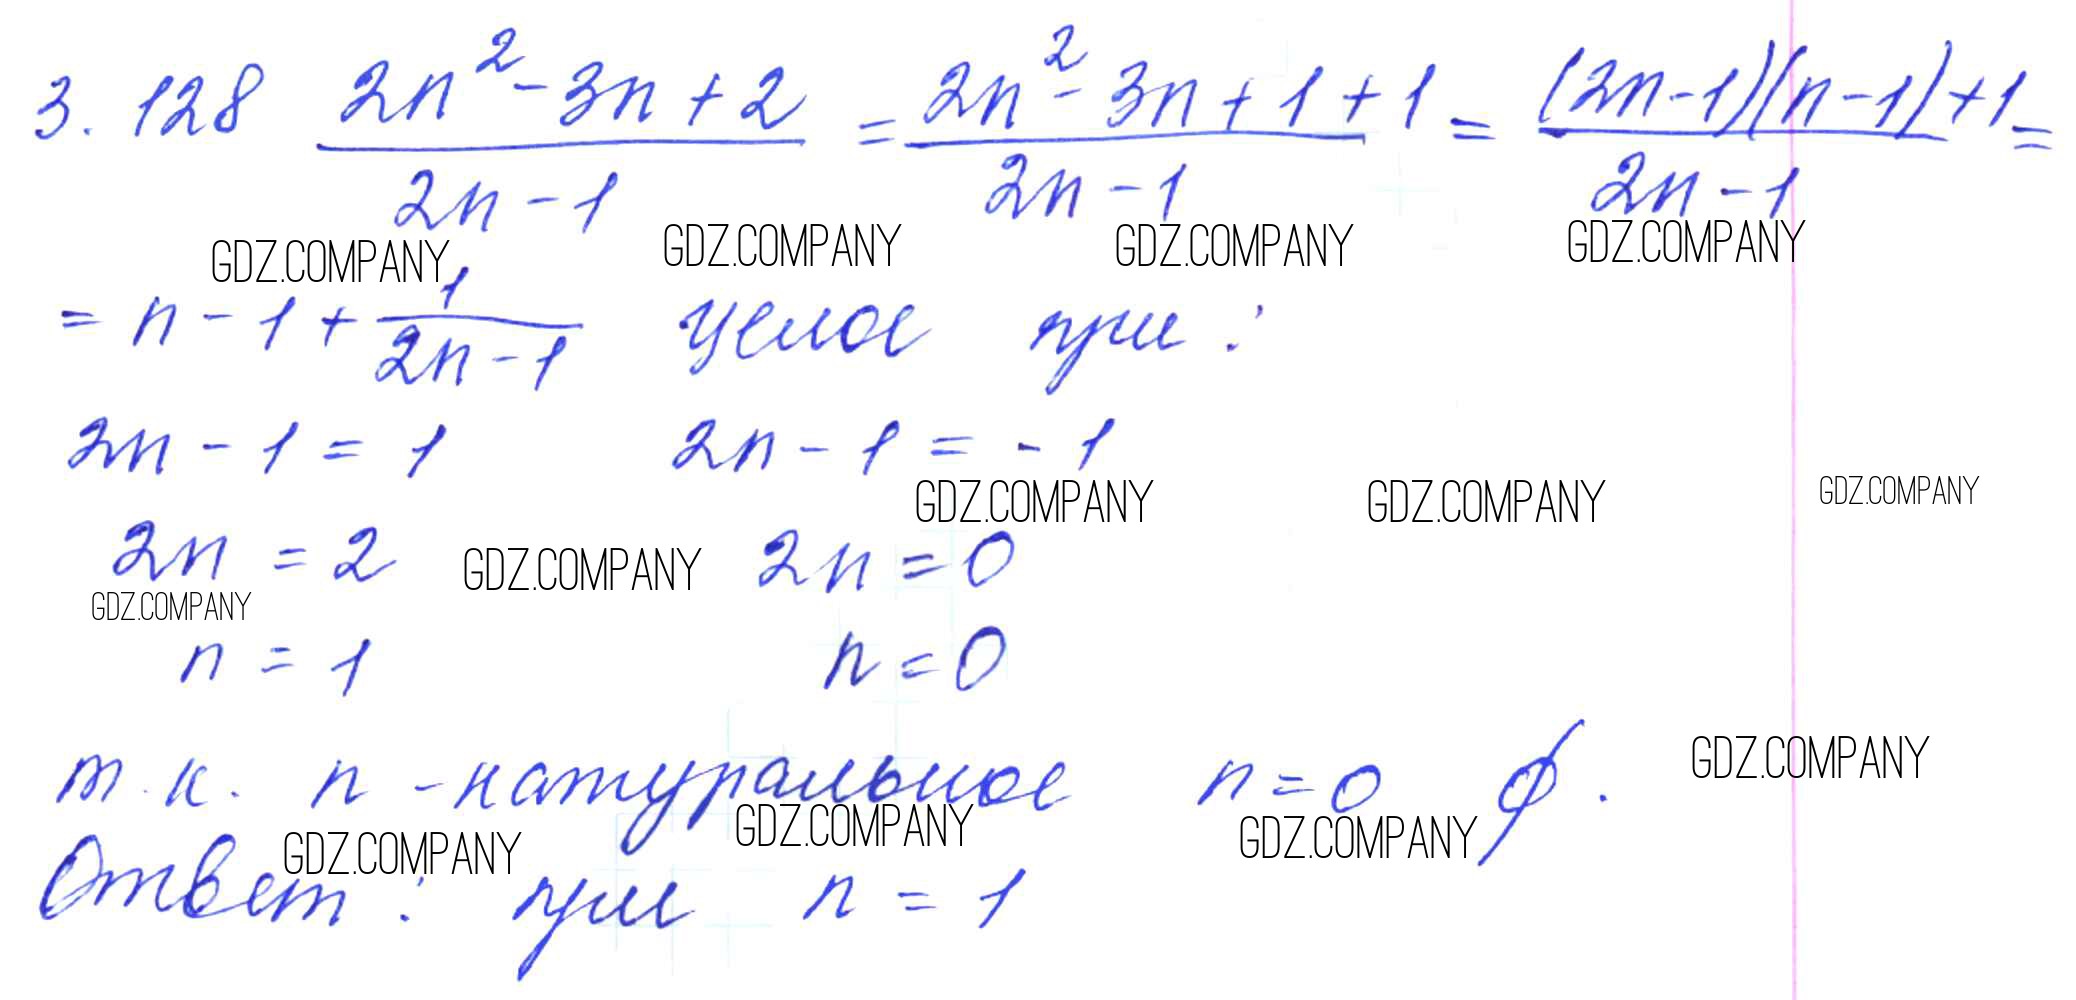 3.128 (2n² - 3n + 2)/(2n - 1) = (2n² - 3n + 1 + 1)/(2n - 1) = ((2n-1)(n-1)+1)/(2n - 1) =
GDZ.COMPANY GDZ.COMPANY GDZ.COMPANY GDZ.COMPANY
= n - 1 + 1/(2n - 1) целое при:
2n - 1 = 1 2n - 1 = -1
GDZ.COMPANY GDZ.COMPANY GDZ.COMPANY
2n = 2 GDZ.COMPANY 2n = 0
GDZ.COMPANY
n = 1 n = 0
GDZ.COMPANY
т.к. n - натуральное n = 0 ∅.
GDZ.COMPANY GDZ.COMPANY GDZ.COMPANY
Ответ: при n = 1